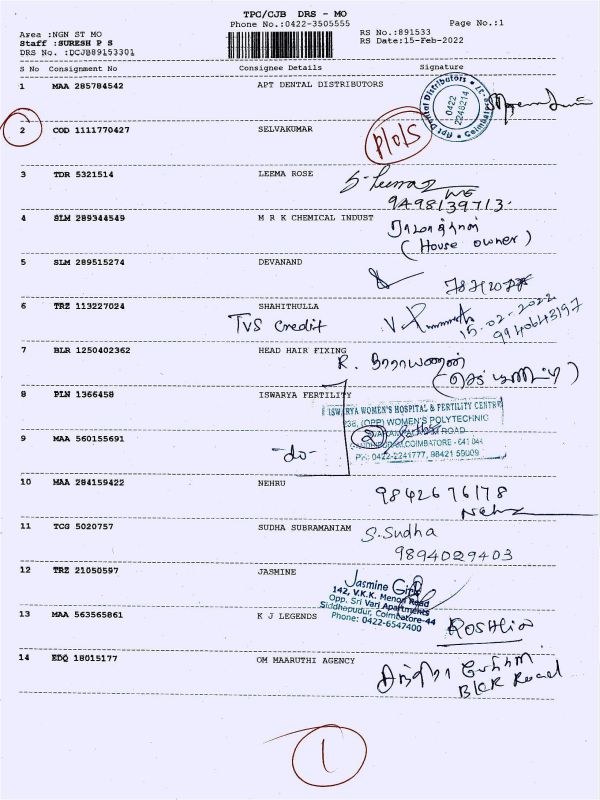 TPC/CJB DRS - MO
Phone No.:0422-3505555
Page No.:1
Area :NGN ST MO
RS No.:891533
Staff :SURESH P S
RS Date:15-Feb-2022
DRS No. :DCJB89153301
S No Consignment No Consignee Details Signature
1 MAA 285784542 APT DENTAL DISTRIBUTORS
Apt Dental Distributors
0422
2248214
2 COD 1111770427 SELVAKUMAR
3 TDR 5321514 LEEMA ROSE S. Leema
9498139713
4 SLM 289344549 M R K CHEMICAL INDUST
(House owner)
5 SLM 289515274 DEVANAND
6 TRZ 113227024 SHAHITHULLA
TVS credit
15-02-2022
9940643197
7 BLR 1250402362 HEAD HAIR FIXING
R. நாராயணன்
8 PLN 1366458 ISWARYA FERTILITY
ISWARYA WOMEN'S HOSPITAL & FERTILITY CENTRE
(OPP) WOMEN'S POLYTECHNIC
COIMBATORE - 641 044
PH: 0422-2241777, 98421 59009
9 MAA 560155691 -do-
10 MAA 284159422 NEHRU 9842676178
Nehru
11 TCG 5020757 SUDHA SUBRAMANIAM S. Sudha
9894029403
12 TRZ 21050597 JASMINE
Jasmine
142, V.K.K. Menon Road
Opp. Sri Vari Apartments
Siddhapudur, Coimbatore-44
Phone: 0422-6547400
13 MAA 563565861 K J LEGENDS
14 EDQ 18015177 OM MAARUTHI AGENCY
Road
1